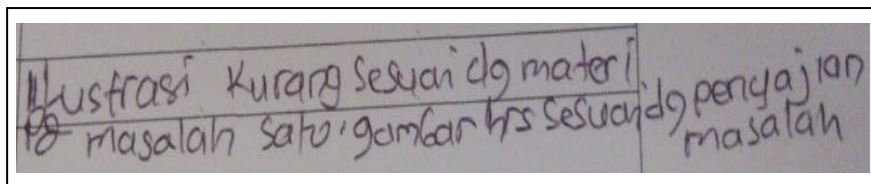 Ilustrasi kurang sesuai dg materi
pd masalah satu, gambar hrs sesuai dg penyajian
masalah